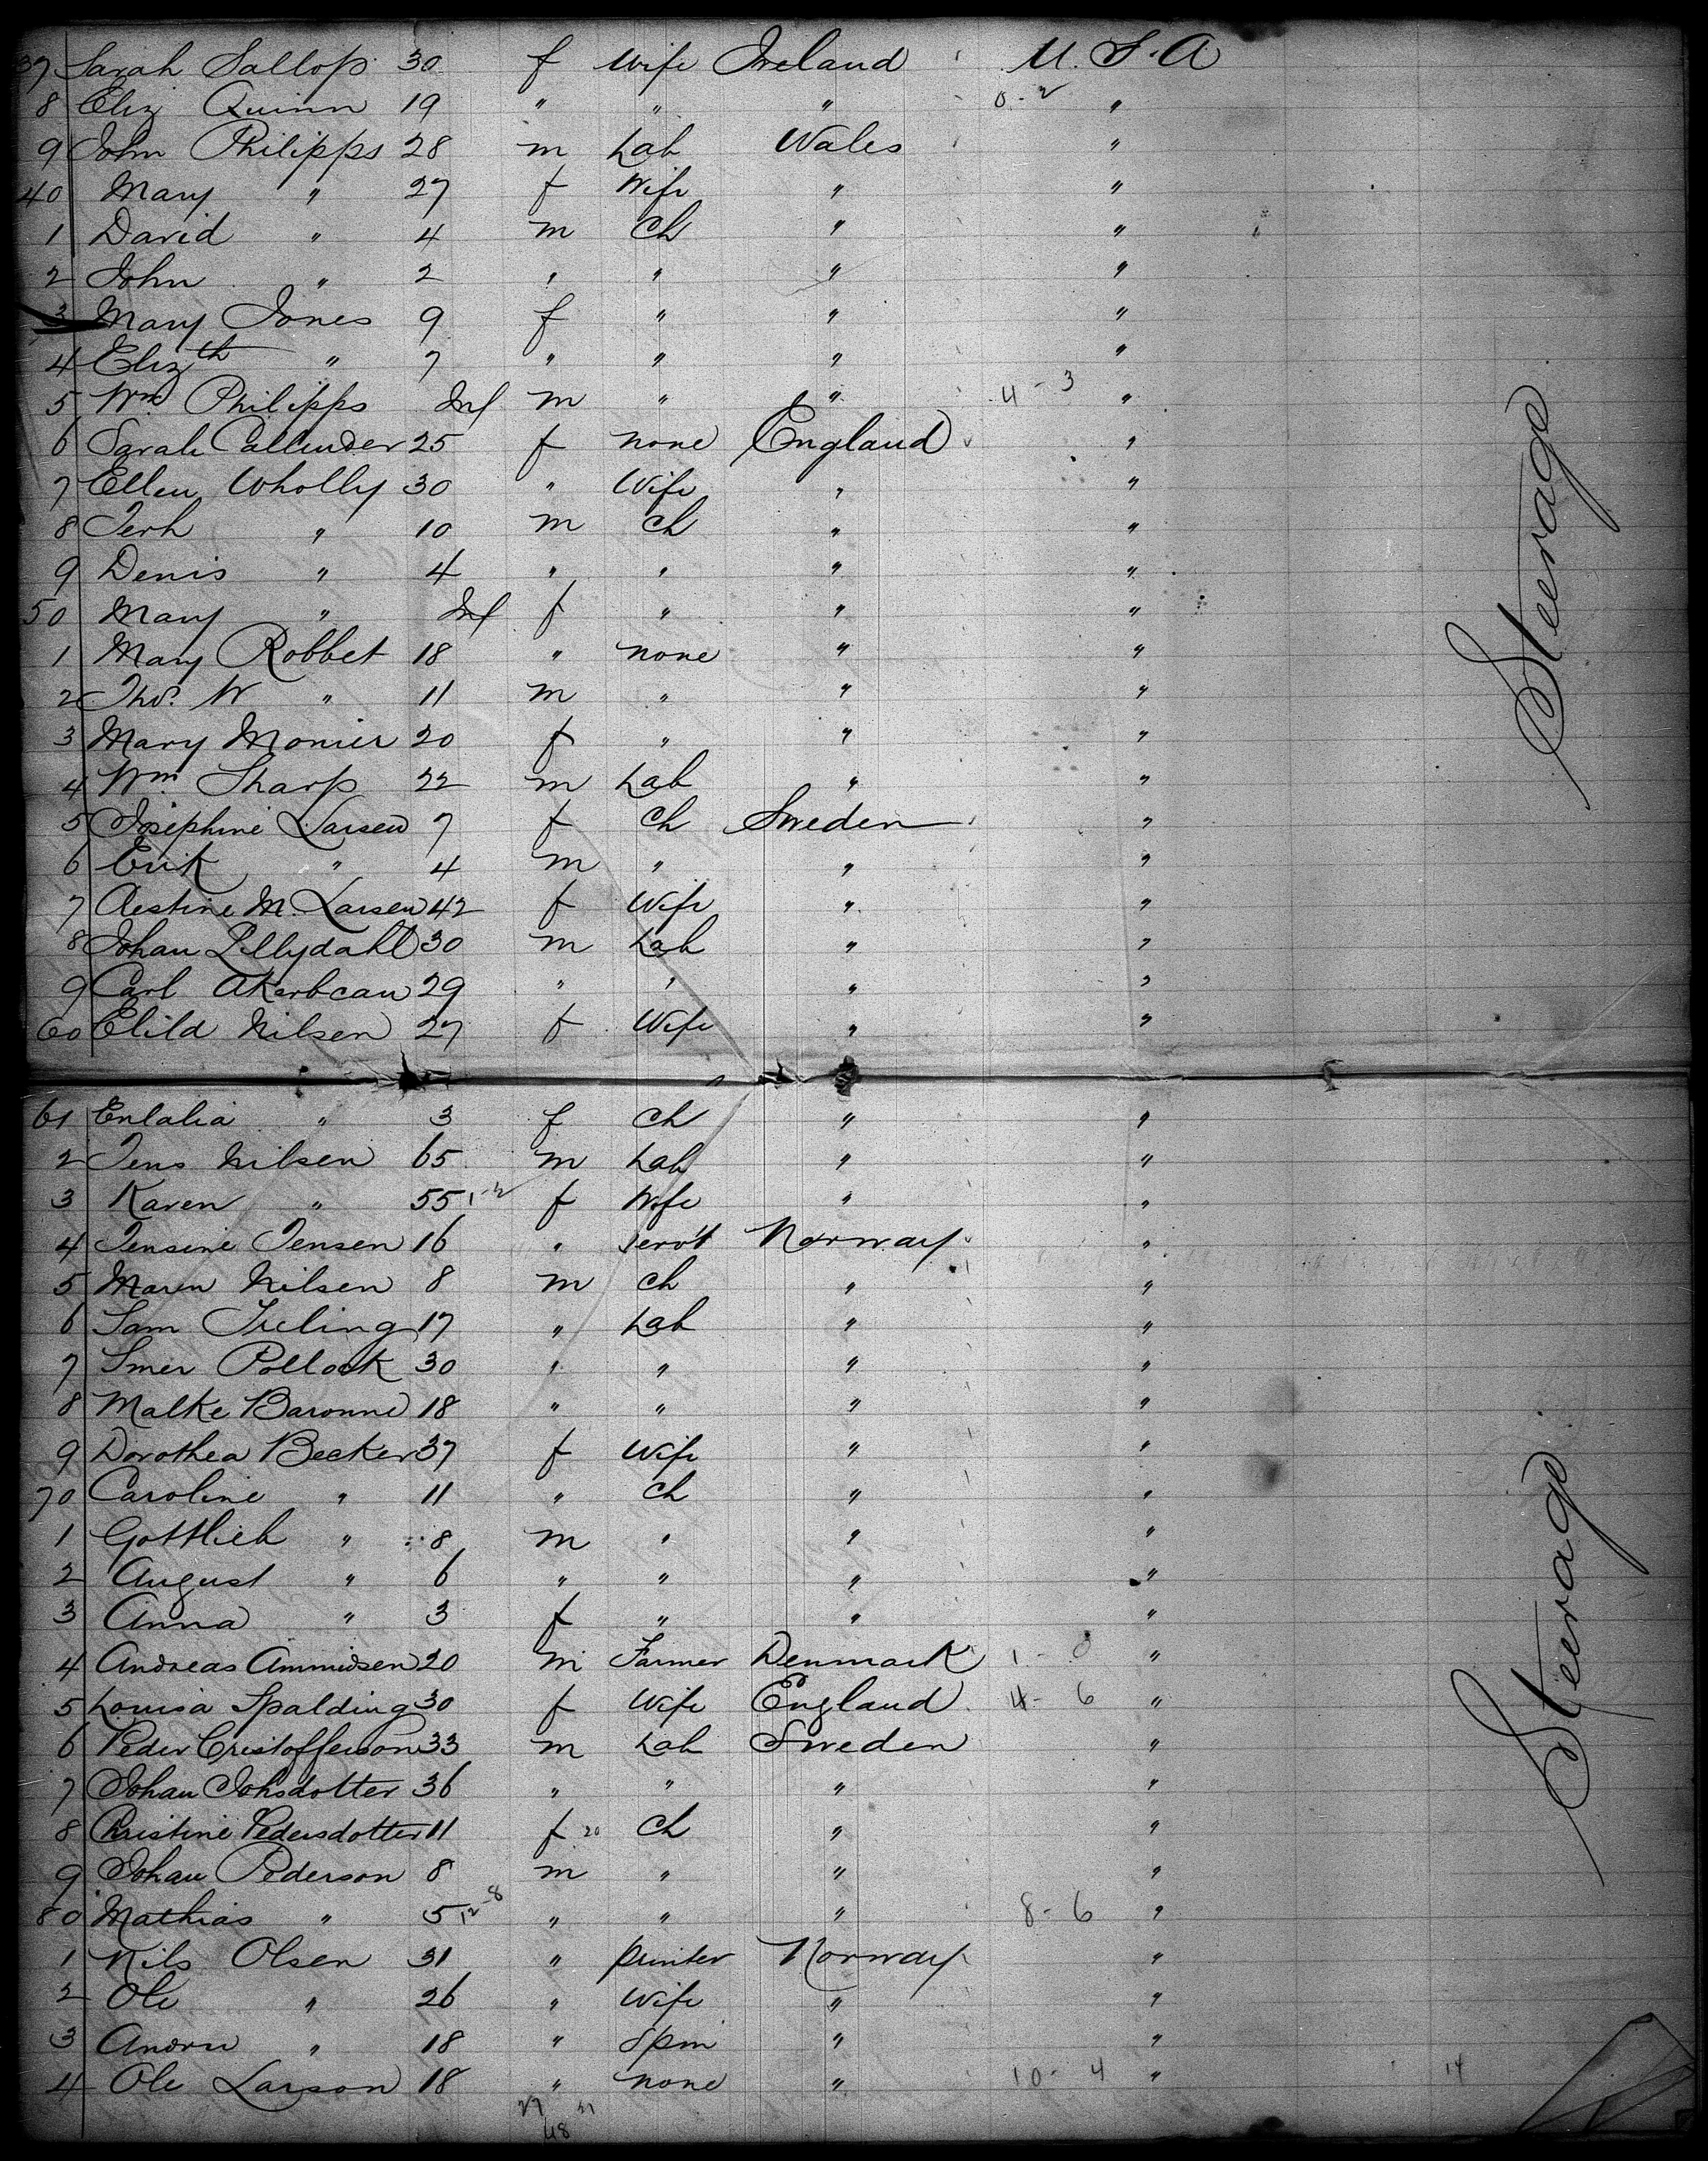 37 Sarah Sallop 30 f Wife Ireland U.S.A
8 Eliz Quinn 19 " " " 0-2 "
9 John Philipps 28 m Lab Wales "
40 Mary " 27 f Wife " "
1 David " 4 m Ch " "
2 John " 2 " " " "
3 Mary Jones 9 f " " "
4 Elizth " 7 " " " "
5 Wm Philipps Inf m " " 4-3 "
6 Sarah Callender 25 f none England "
7 Ellen Wholly 30 " Wife " "
8 Jerh " 10 m Ch " "
9 Denis " 4 " " " "
50 Mary " Inf f " " "
1 Mary Robbet 18 " none " "
2 Thos. W " 11 m " " "
3 Mary Monier 20 f " " "
4 Wm Sharp 22 m Lab " "
5 Josephine Larsen 7 f Ch Sweden "
6 Erik " 4 m " " "
7 Aestine M. Larsen 42 f Wife " "
8 Johan Lillydahl 30 m Lab " "
9 Carl Akerbcan 29 " " " "
60 Elild Nilsen 27 f Wife " "
Steerage
61 Enlalia " 3 f Ch " "
2 Jens Nilsen 65 m Lab " "
3 Karen " 55 1-2 f Wife " "
4 Jensine Jensen 16 " Servt Norway "
5 Maren Nilsen 8 m Ch " "
6 Sam Treling 17 " Lab " "
7 Smer Pollock 30 " " " "
8 Malke Baronne 18 " " " "
9 Dorothea Becker 37 f Wife " "
70 Caroline " 11 " Ch " "
1 Gottlieb " 8 m " " "
2 August " 6 " " " "
3 Anna " 3 f " " "
4 Andreas Ammidsen 20 m Farmer Denmark 1-0 "
5 Louisa Spalding 30 f Wife England 4-6 "
6 Peder Cristofferson 33 m Lab Sweden "
7 Johan Johsdotter 36 " " " "
8 Christine Pedersdotter 11 f 20 Ch " "
9 Johan Pederson 8 m " " "
80 Mathias " 5 12-8 " " " 8-6 "
1 Nils Olsen 31 " printer Norway "
2 Ole " 26 " Wife " "
3 Andru " 18 " Spin " "
4 Ole Larson 18 " none " 10-4 " 14
27 21
48
Steerage